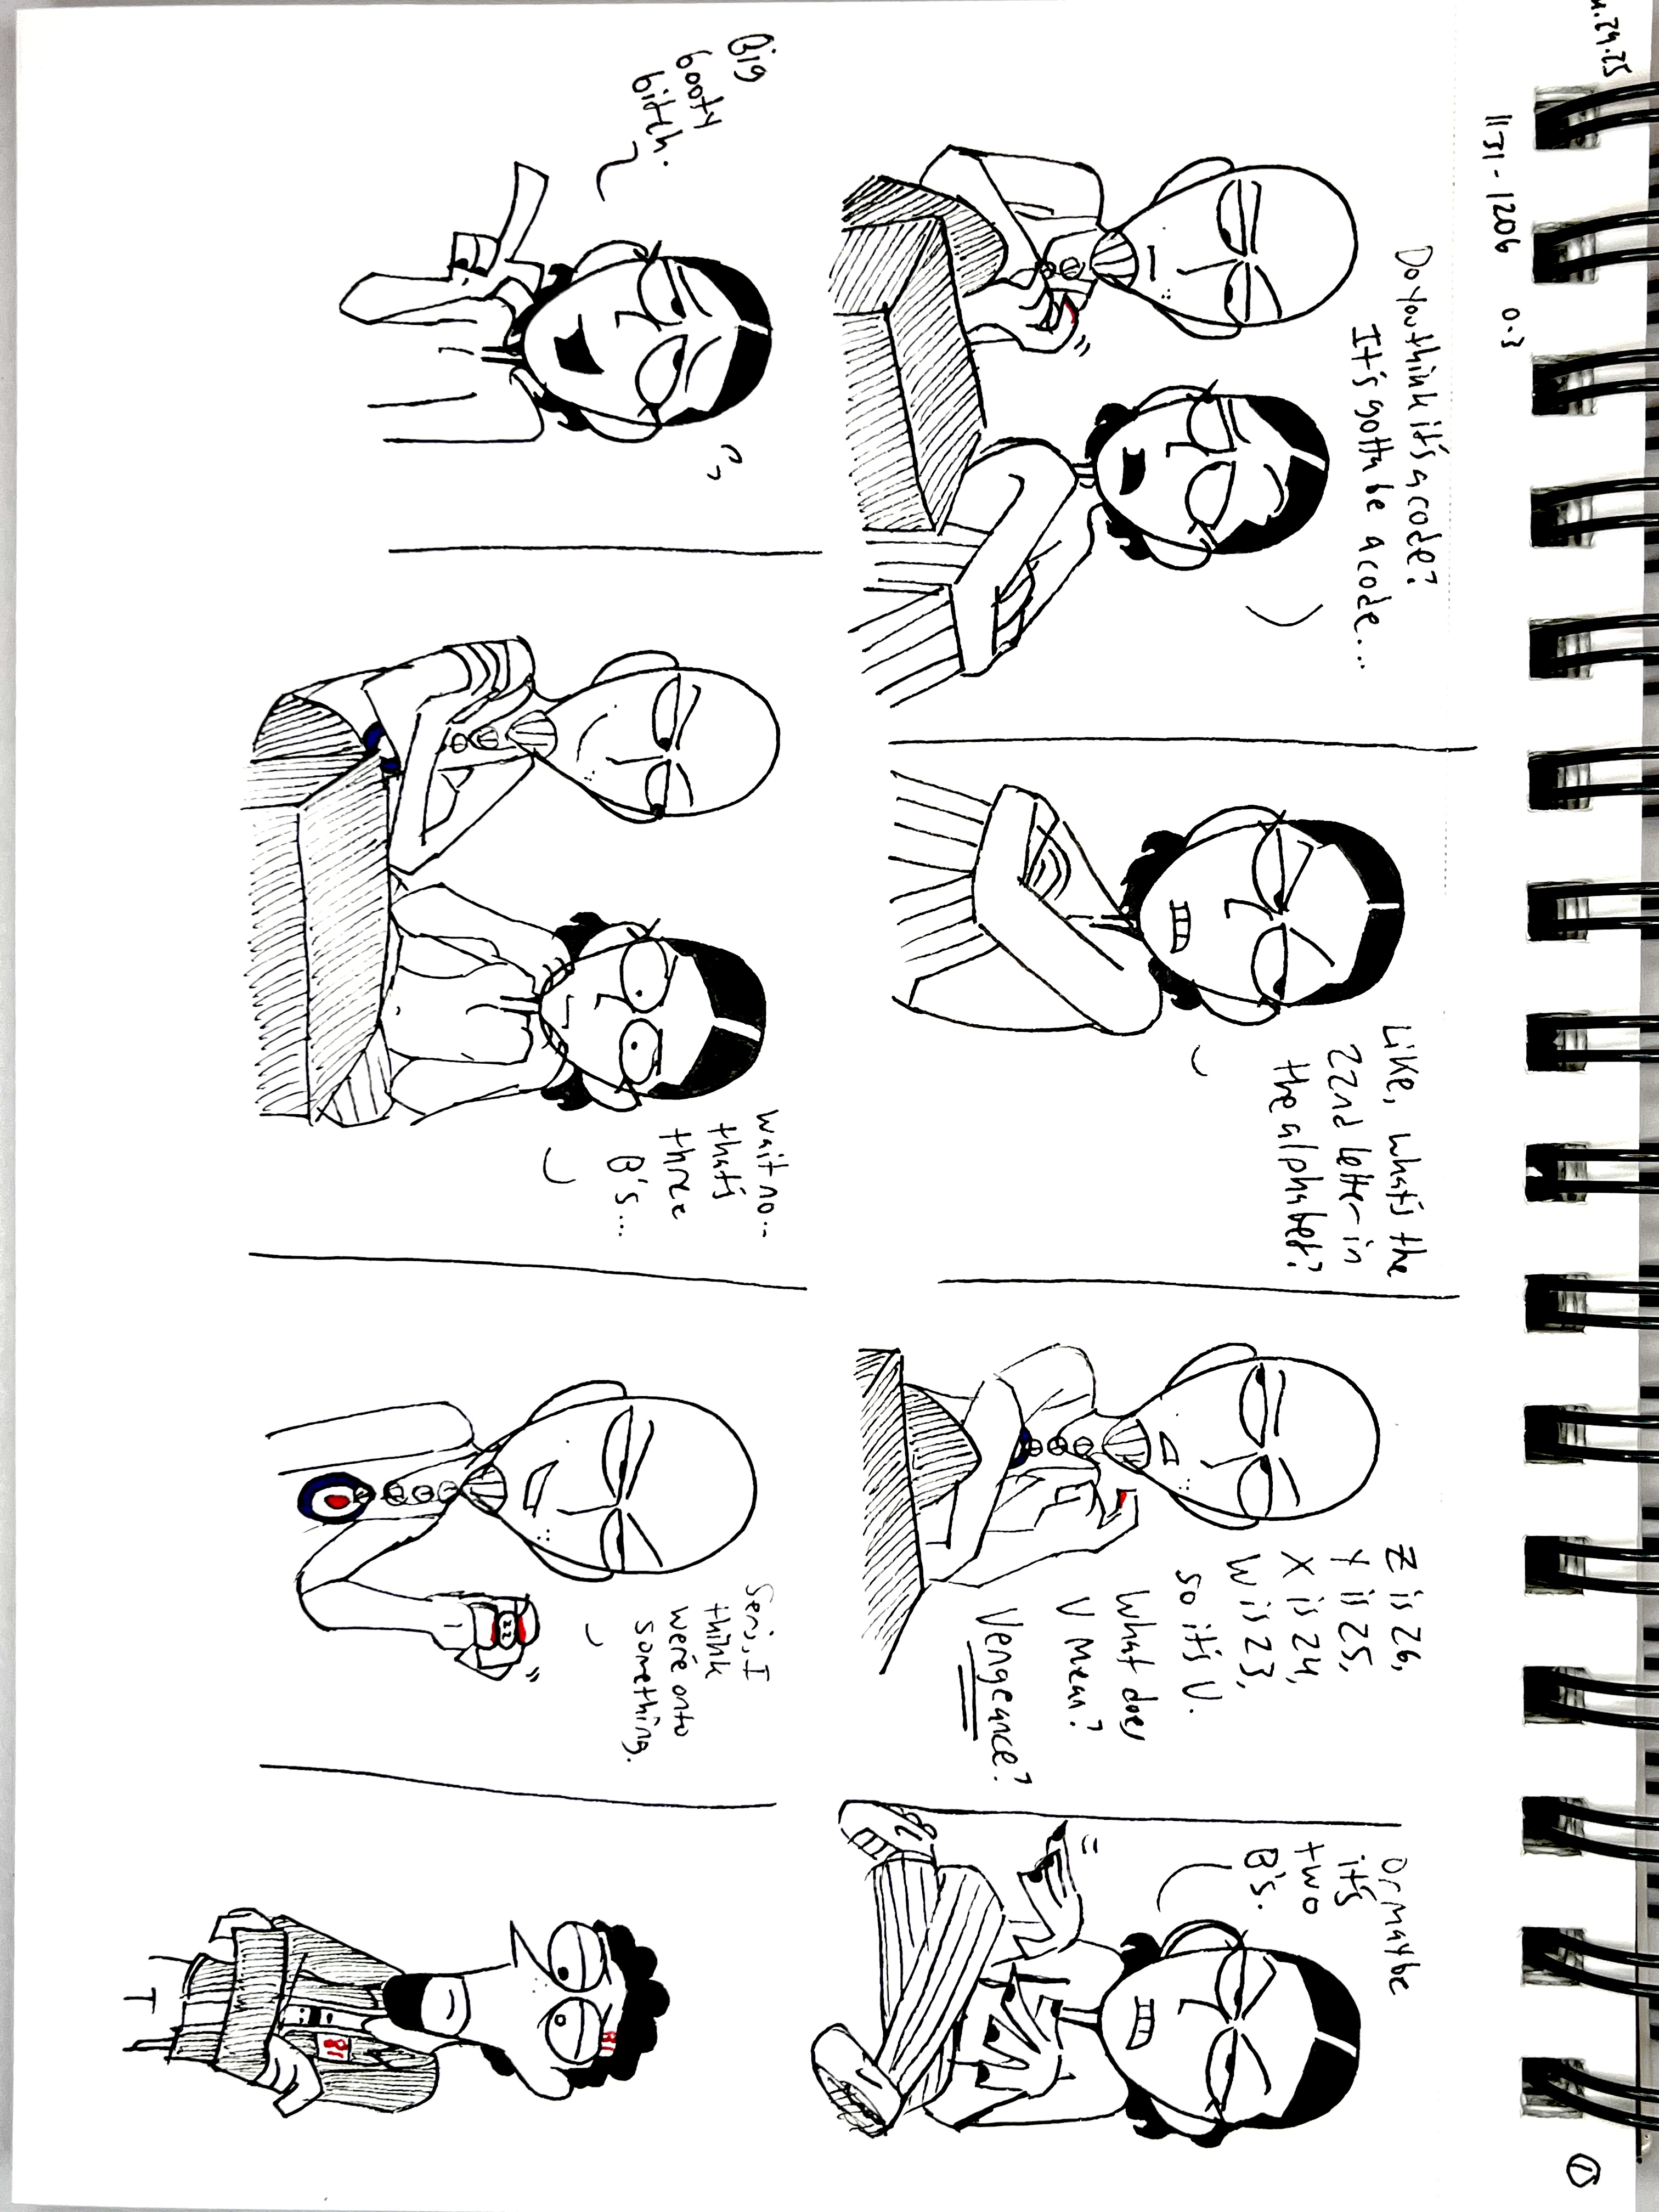 .29.25
1
1131-1206 0.3
Do you think it's a code?
It's gotta be a code...
Like, what's the
22nd letter in
the alphabet?
Z is 26,
Y is 25,
X is 24,
W is 23,
so it's V.
What does
V mean?
Vengeance?
Or maybe
it's
two
B's.
Big
booty
bitch.
wait no...
that's
three
B's...
Seris, I
think
we're onto
something.
22
81
81
T